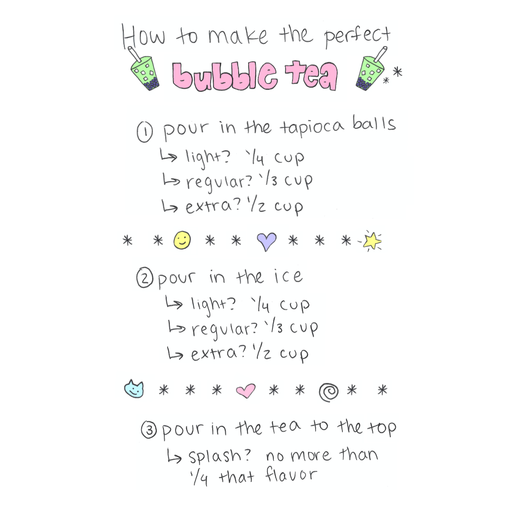 How to make the perfect
bubble tea
① pour in the tapioca balls
↳ light? 1/4 cup
↳ regular? 1/3 cup
↳ extra? 1/2 cup
② pour in the ice
↳ light? 1/4 cup
↳ regular? 1/3 cup
↳ extra? 1/2 cup
③ pour in the tea to the top
↳ splash? no more than
1/4 that flavor